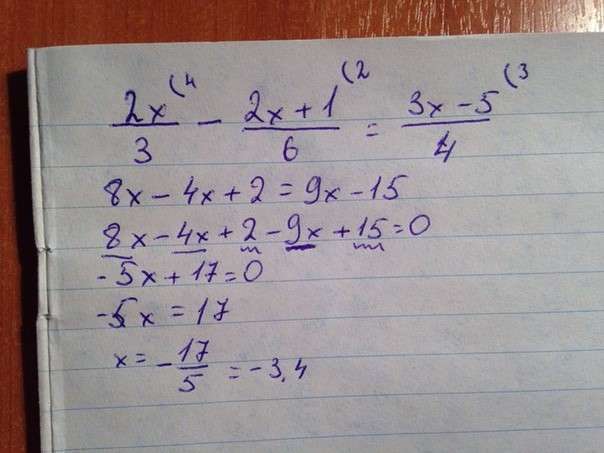 2x/3 (4 - 2x+1/6 (2 = 3x-5/4 (3
8x - 4x + 2 = 9x - 15
8x - 4x + 2 - 9x + 15 = 0
-5x + 17 = 0
-5x = 17
x = - 17/5 = -3,4